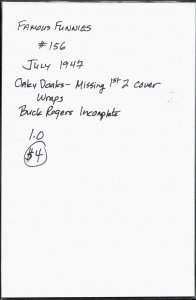 Famous Funnies
# 156
July 1947
Oaky Doaks - Missing 1st 2 cover
Wraps
Buck Rogers Incomplete
1.0
$4